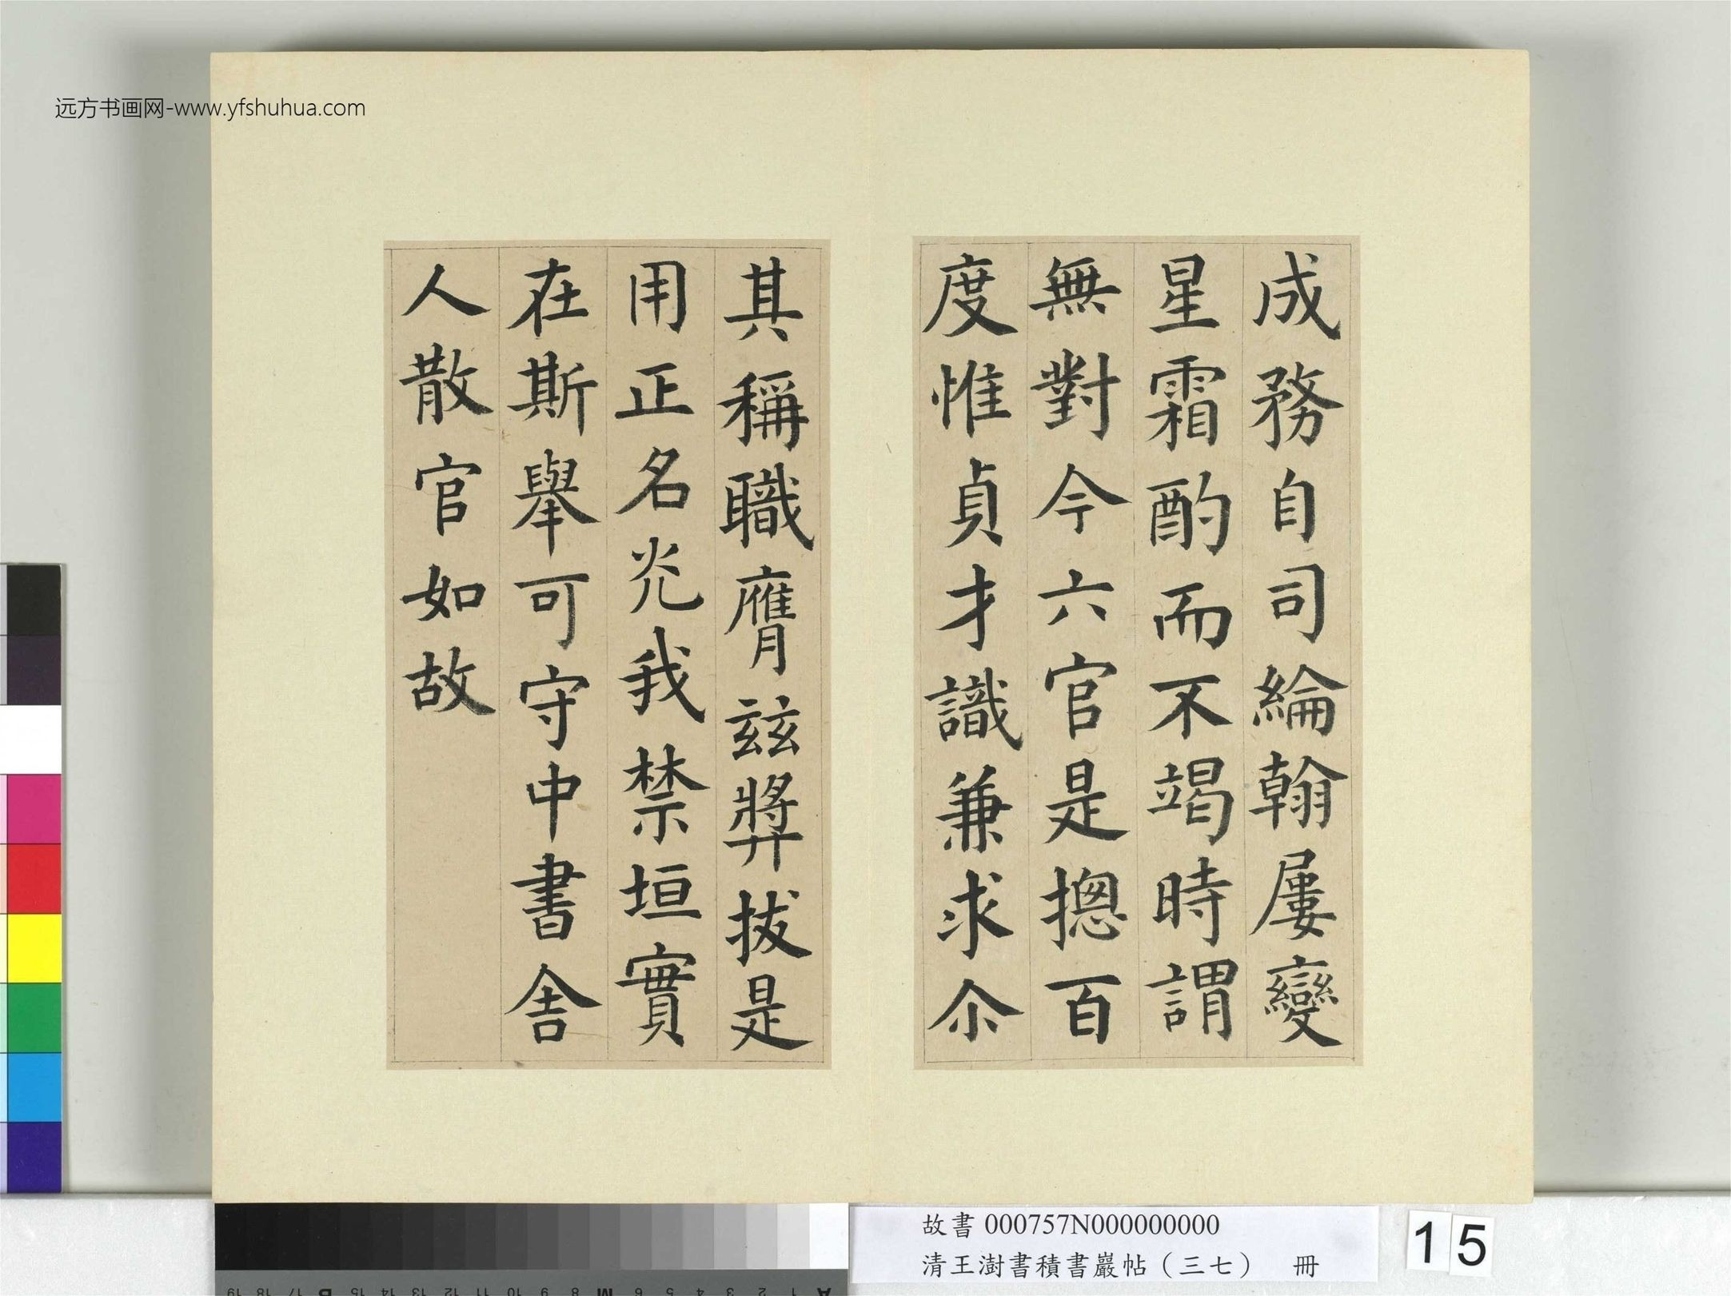 远方书画网-www.yfshuhua.com
成務自司綸翰屢變
星霜酌而不竭時謂
無對今六官是摠百
度惟貞才識兼求尒
其稱職膺茲獎拔是
用正名光我禁垣實
在斯舉可守中書舍
人散官如故
故書 000757N000000000
清王澍書積書巖帖（三七） 冊
15